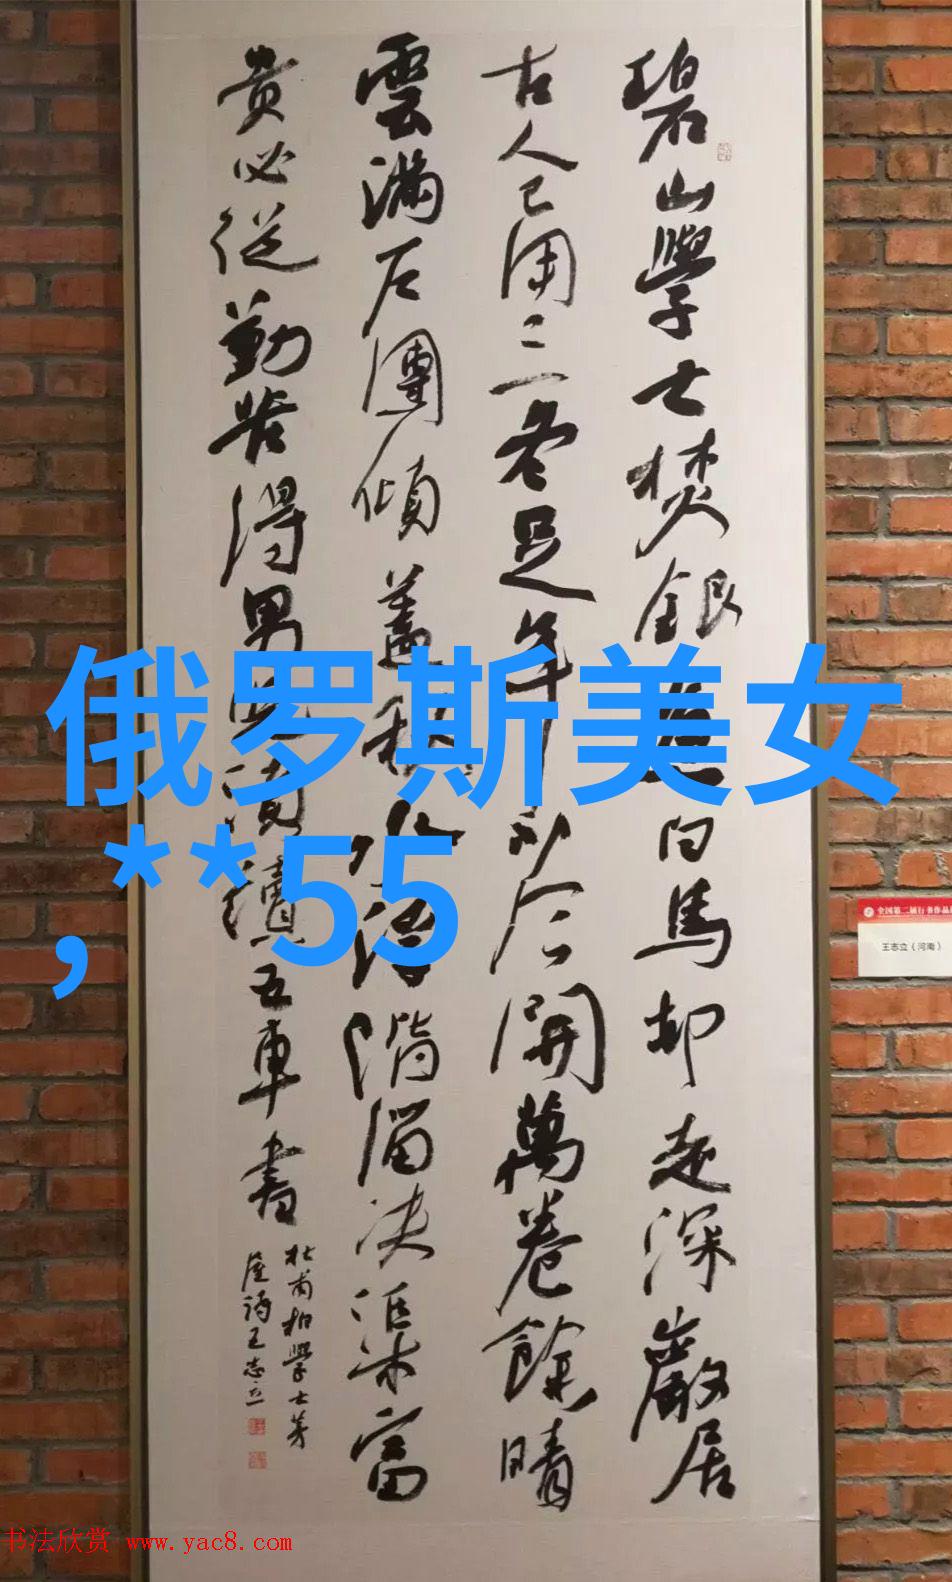 碧山學士焚銀魚白馬却走深巖居
古人已用三冬足年少今開萬卷餘晴
雲滿户團傾蓋秋水浮階溜決渠富
貴必從勤苦得男兒須讀五車書
杜甫柏學士茅
屋詩王志立
俄罗斯美女
,**55
全国第二届行书作品
王志立(河南)
书法欣赏 www.yac8.com